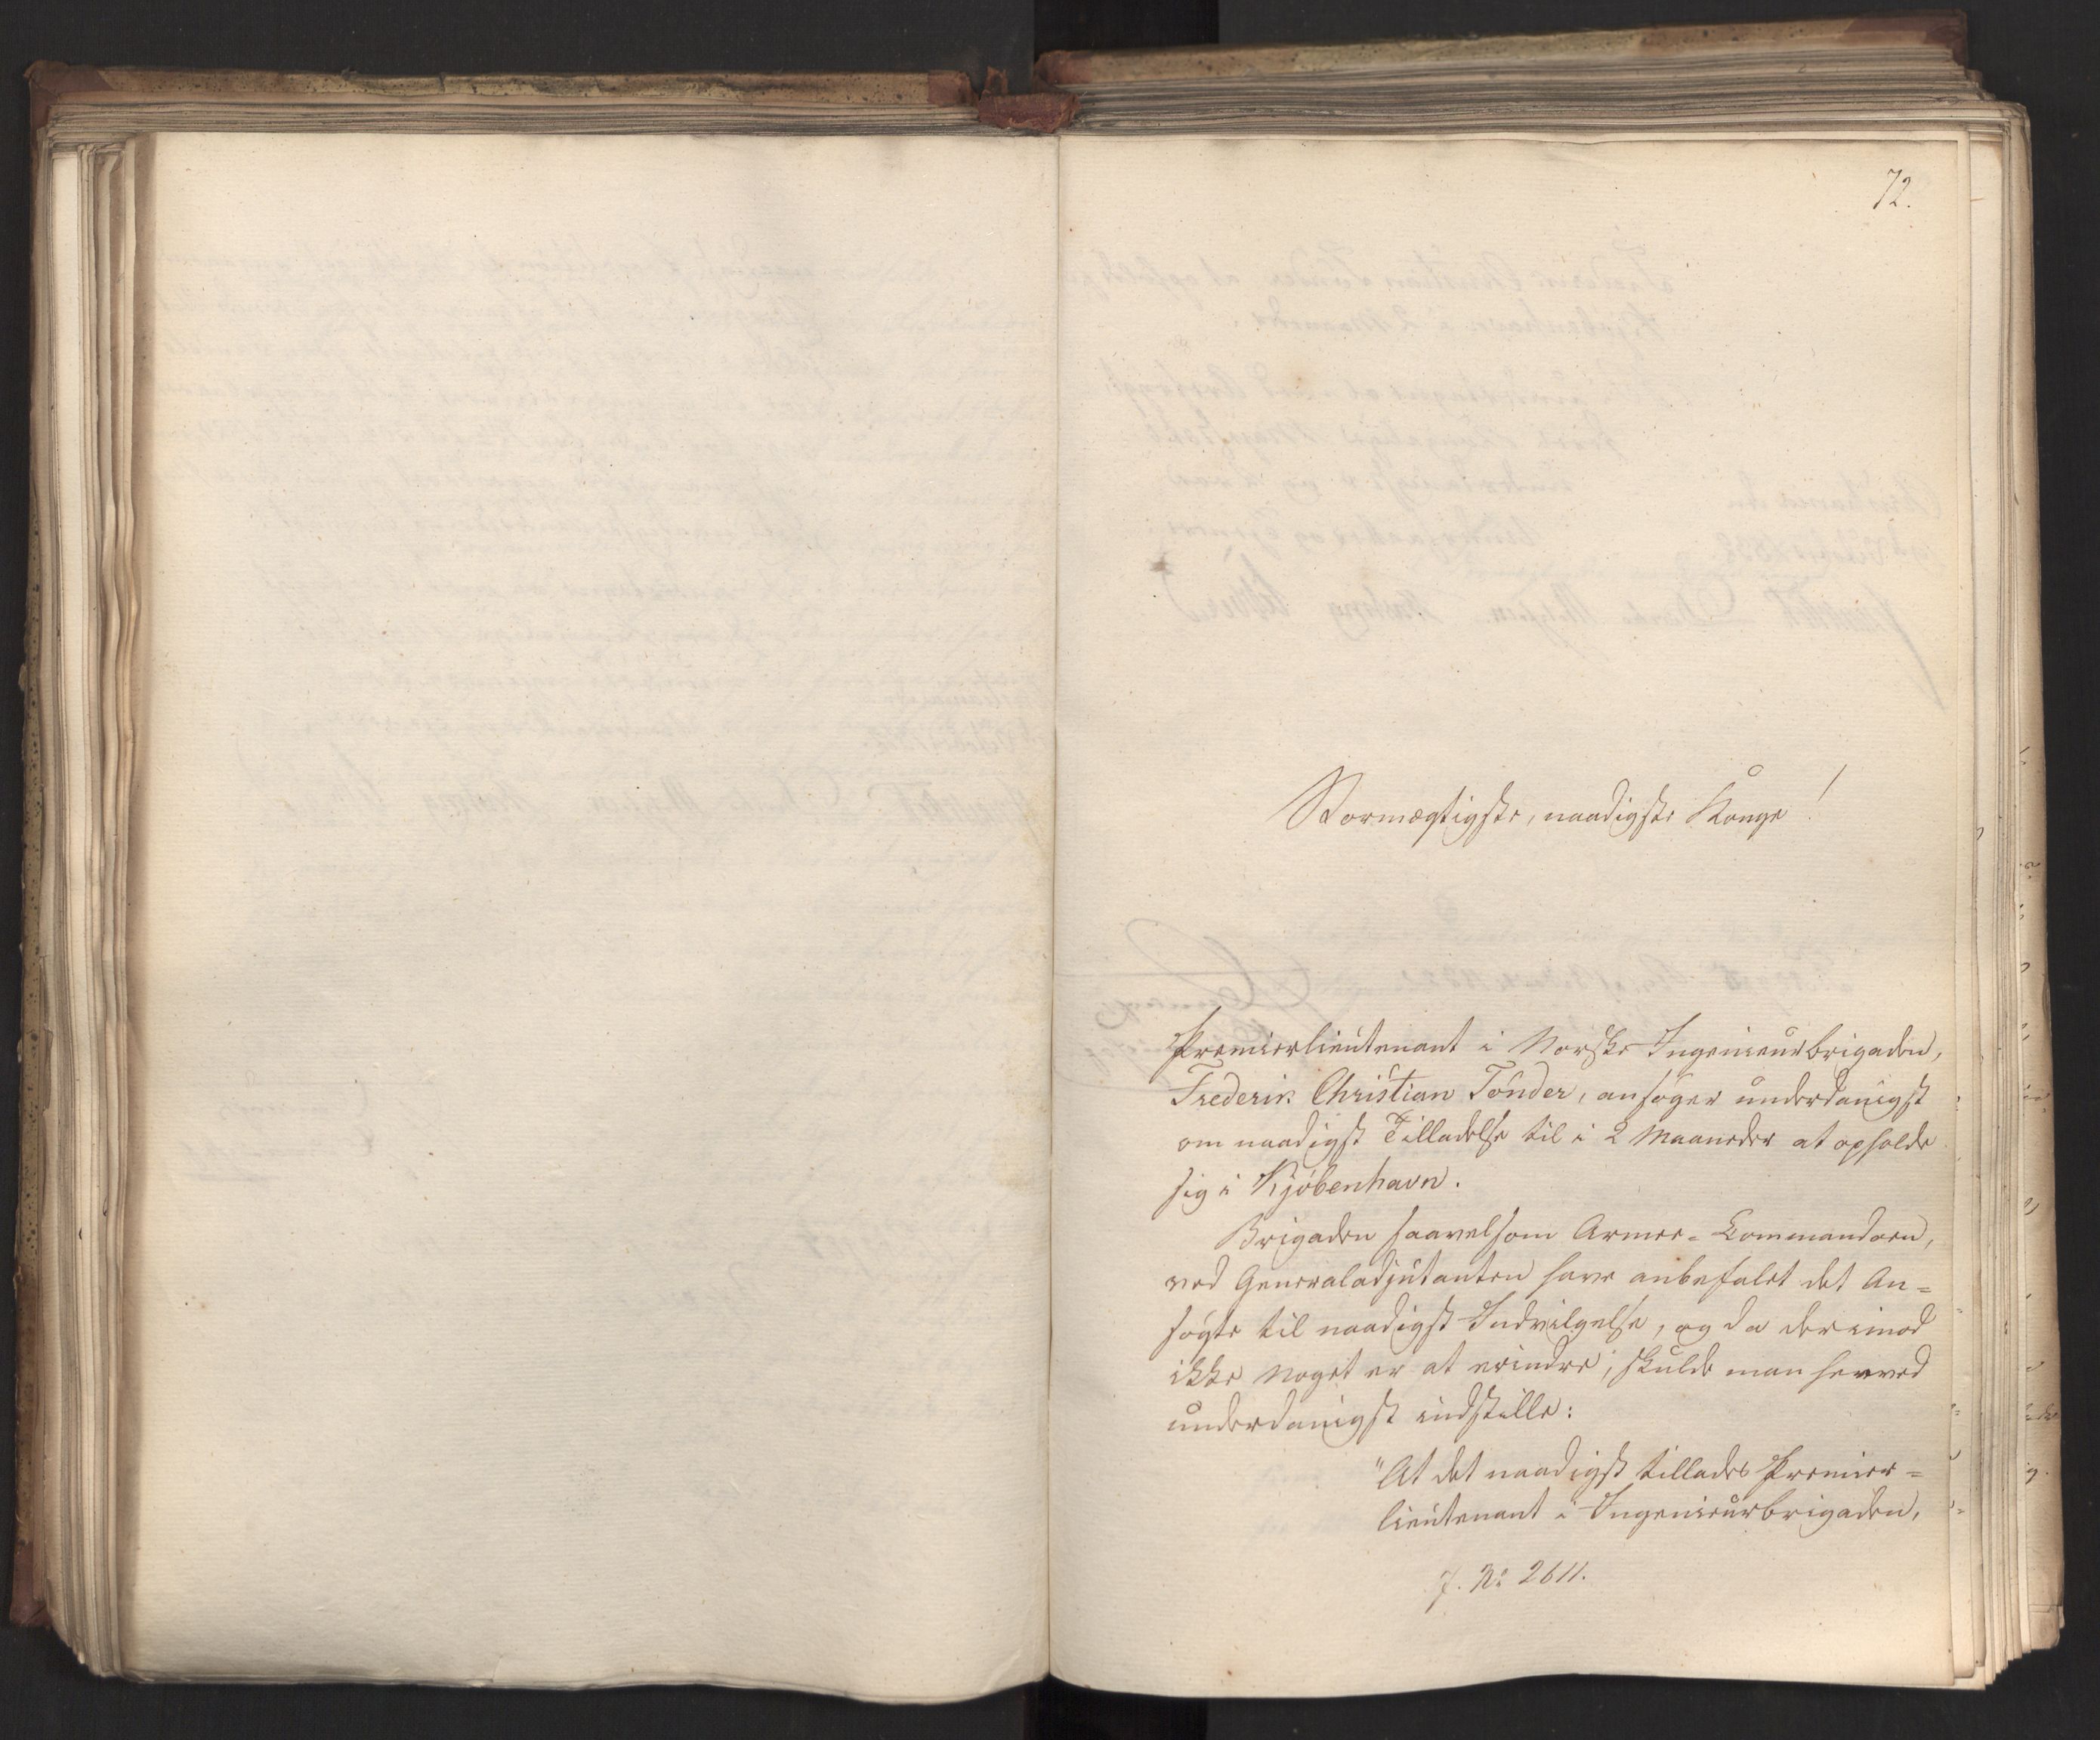 72.
Stormægtigste, naadigste Konge!
Premierlieutenant i Norske Ingenieurbrigaden,
Frederik Christian Tønder, ansøger underdanigst
om naadigst Tilladelse til i 2 Maaneder at opholde
sig i Kjøbenhavn.
Brigaden saavelsom Armee-Commandoen,
ved Generaladjutanten have anbefalet det An=
søgte til naadigst Indvilgelse, og da derimod
ikke noget er at erindre, skulde man herved
underdanigst indstille:
"At det naadigst tillades Premier=
lieutenant i Ingenieurbrigaden,
J. No 2611.